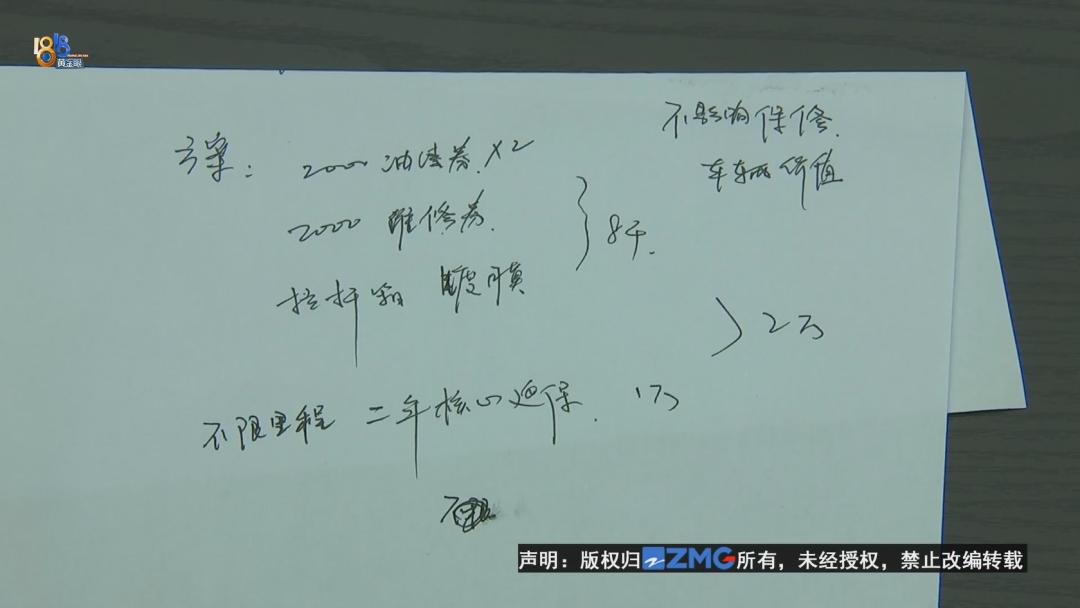 1818
黄金眼
不影响保修.
方案: 2000 油漆券.X2
车辆的价值
2000 维修券.
8千.
拉杆箱 镀膜
2万
不限里程 二年核心延保. 1万
不
声明：版权归ZMG所有，未经授权，禁止改编转载